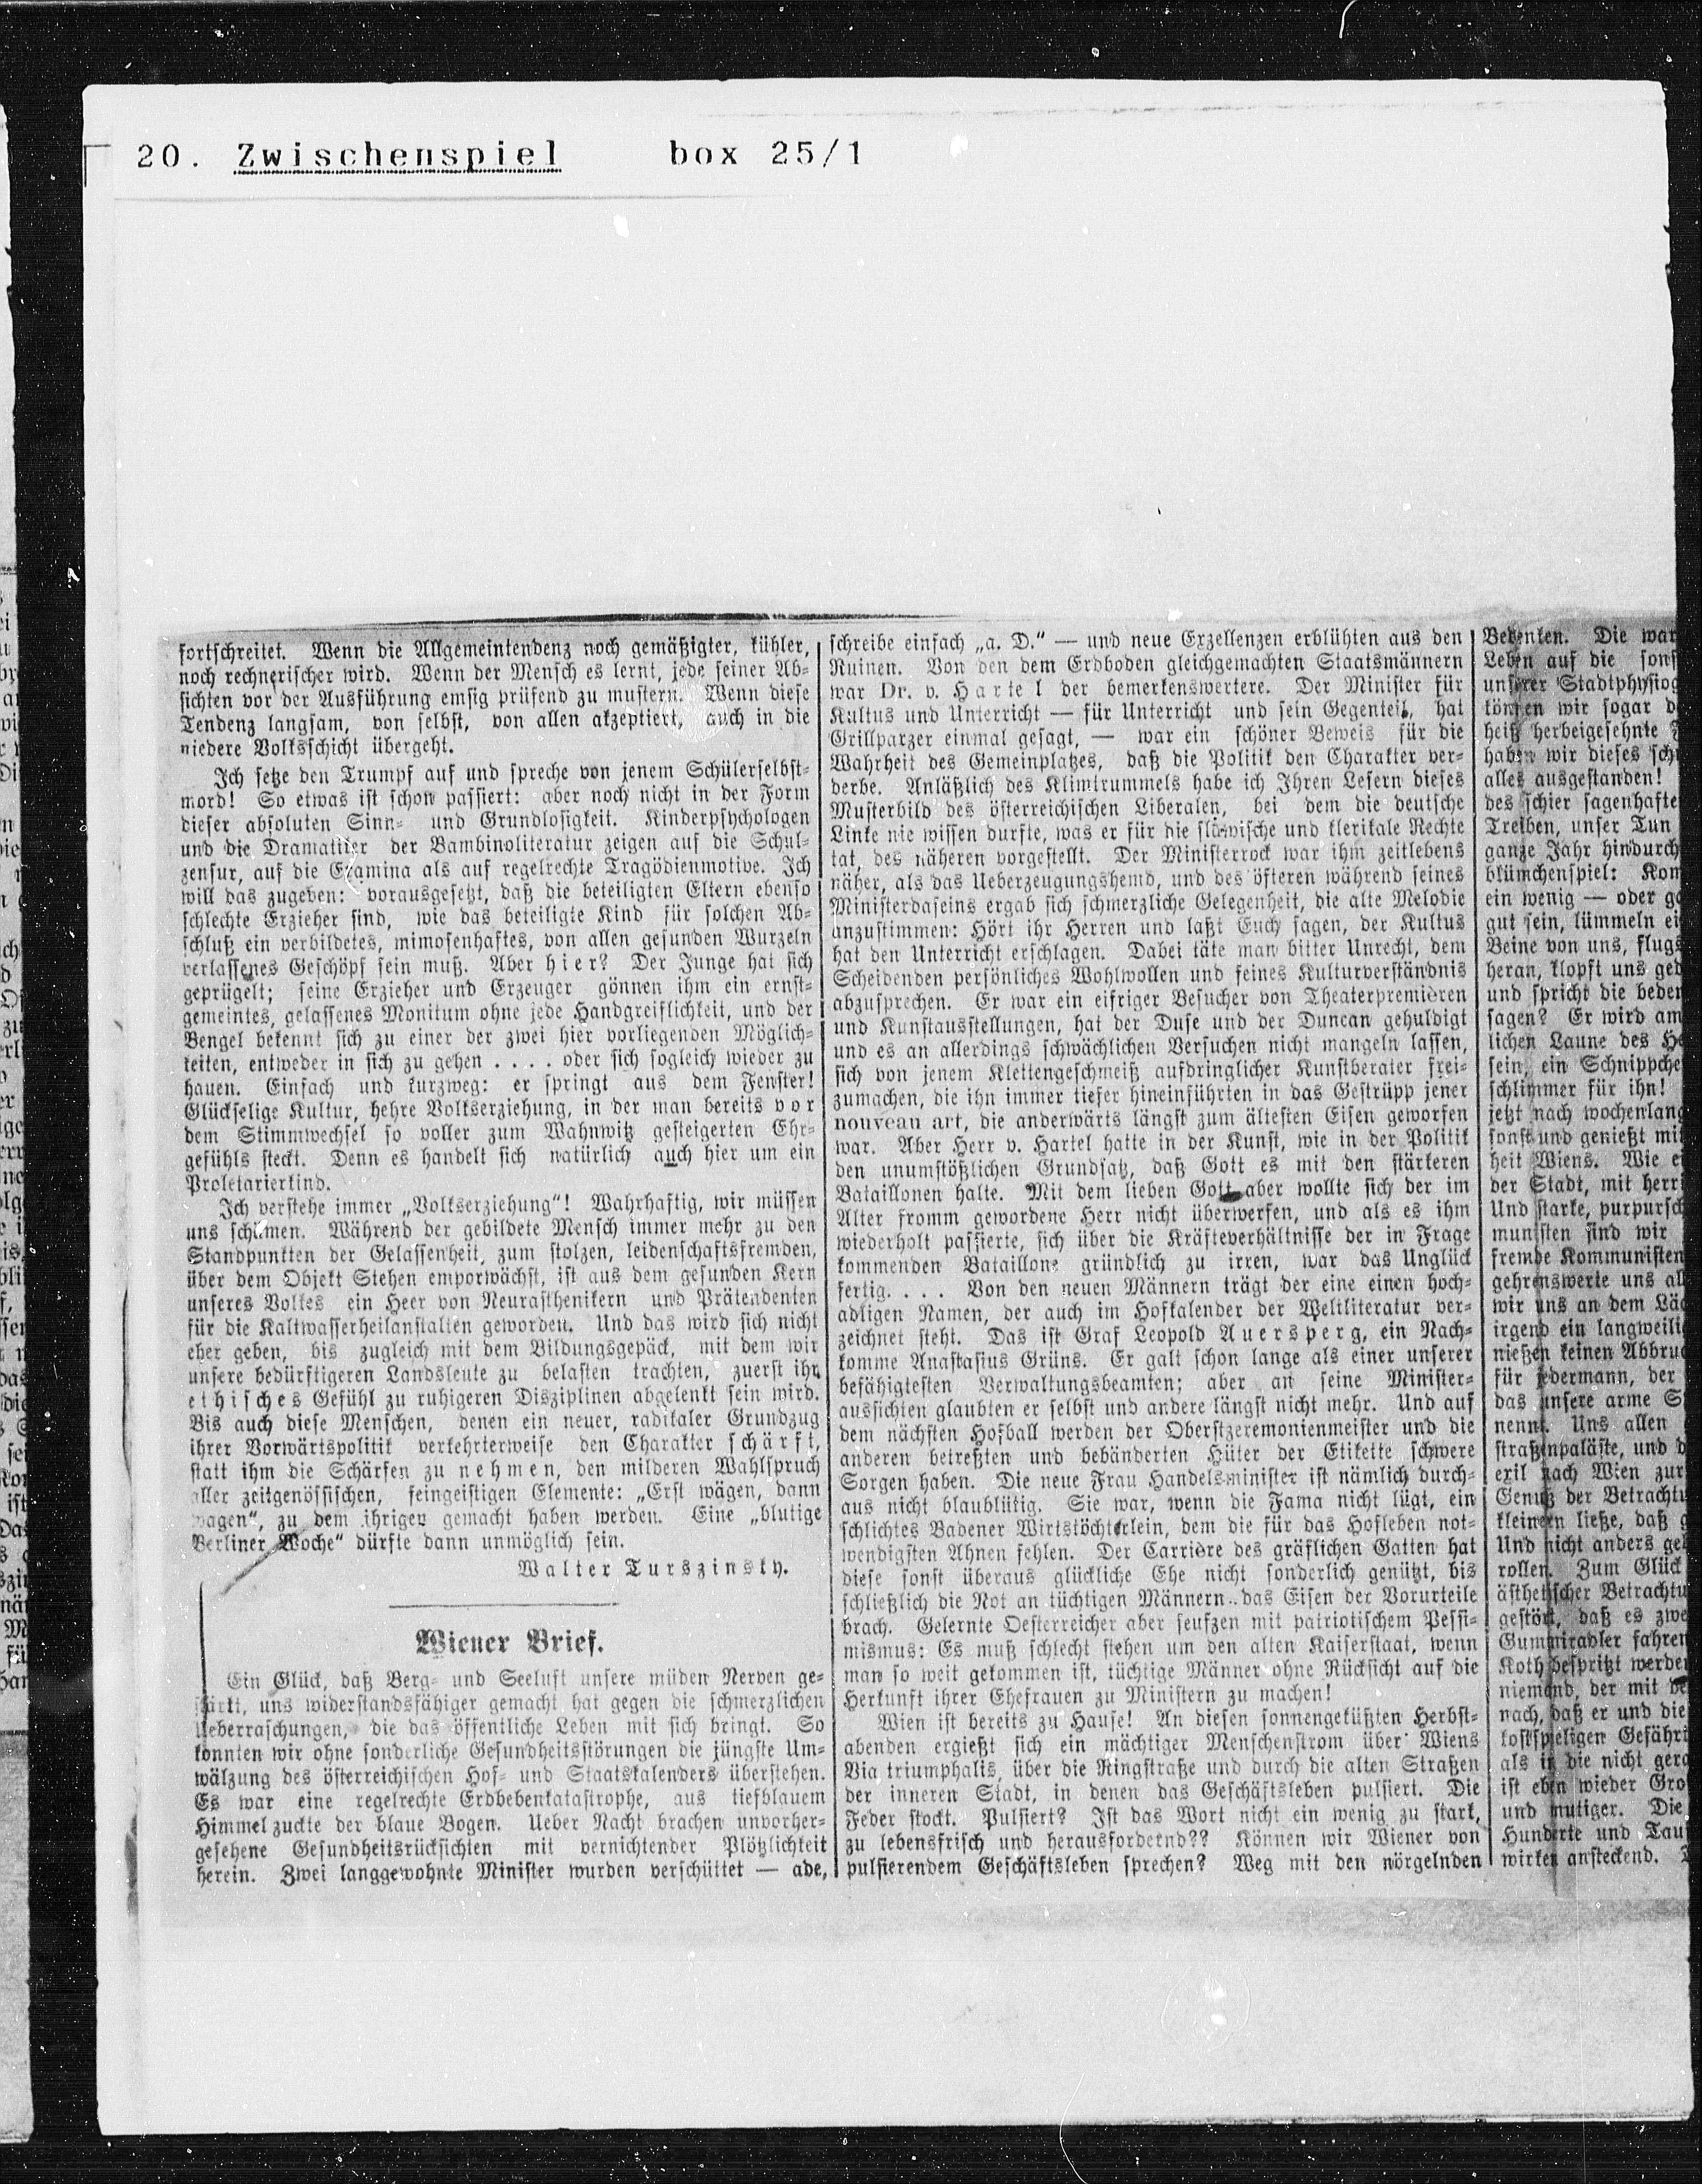 20. Zwischenspiel box 25/1
fortschreitet. Wenn die Allgemeintendenz noch gemäßigter, kühler,
noch rechnerischer wird. Wenn der Mensch es lernt, jede seiner Ab-
sichten vor der Ausführung emsig prüfend zu mustern. Wenn diese
Tendenz langsam, von selbst, von allen akzeptiert, auch in die
niedere Volksschicht übergeht.
Ich setze den Trumpf auf und spreche von jenem Schülerselbst-
mord! So etwas ist schon passiert: aber noch nicht in der Form
dieser absoluten Sinn- und Grundlosigkeit. Kinderpsychologen
und die Dramatiker der Bambinoliteratur zeigen auf die Schul-
zensur, auf die Examina als auf regelrechte Tragödienmotive. Ich
will das zugeben: vorausgesetzt, daß die beteiligten Eltern ebenso
schlechte Erzieher sind, wie das beteiligte Kind für solchen Ab-
schluß ein verbildetes, mimosenhaftes, von allen gesunden Wurzeln
verlassenes Geschöpf sein muß. Aber hier? Der Junge hat sich
geprügelt; seine Erzieher und Erzeuger gönnen ihm ein ernst-
gemeintes, gelassenes Monitum ohne jede Handgreiflichkeit, und der
Bengel bekennt sich zu einer der zwei hier vorliegenden Möglich-
keiten, entweder in sich zu gehen . . . . oder sich sogleich wieder zu
hauen. Einfach und kurzweg: er springt aus dem Fenster!
Glückselige Kultur, hehre Volkserziehung, in der man bereits vor
dem Stimmwechsel so voller zum Wahnwitz gesteigerten Ehr-
gefühls steckt. Denn es handelt sich natürlich auch hier um ein
Proletarierkind.
Ich verstehe immer „Volkserziehung“! Wahrhaftig, wir müssen
uns schämen. Während der gebildete Mensch immer mehr zu den
Standpunkten der Gelassenheit, zum stolzen, leidenschaftsfremden,
über dem Objekt Stehen emporwächst, ist aus dem gesunden Kern
unseres Volkes ein Heer von Neurasthenikern und Prätendenten
für die Kaltwasserheilanstalten geworden. Und das wird sich nicht
eher geben, bis zugleich mit dem Bildungsgepäck, mit dem wir
unsere bedürftigeren Landsleute zu belasten trachten, zuerst ihr
ethisches Gefühl zu ruhigeren Disziplinen abgelenkt sein wird.
Bis auch diese Menschen, denen ein neuer, radikaler Grundzug
ihrer Vorwärtspolitik verkehrterweise den Charakter schärft,
statt ihm die Schärfen zu nehmen, den milderen Wahlspruch
aller zeitgenössischen, feingeistigen Elemente: „Erst wägen, dann
wagen“, zu dem ihrigen gemacht haben werden. Eine „blutige
Berliner Woche“ dürfte dann unmöglich sein.
Walter Turszinsky.
Wiener Brief.
Ein Glück, daß Berg- und Seeluft unsere müden Nerven ge-
stärkt, uns widerstandsfähiger gemacht hat gegen die schmerzlichen
Ueberraschungen, die das öffentliche Leben mit sich bringt. So
konnten wir ohne sonderliche Gesundheitsstörungen die jüngste Um-
wälzung des österreichischen Hof- und Staatskalenders überstehen.
Es war eine regelrechte Erdbebenkatastrophe, aus tiefblauem
Himmel zuckte der blaue Bogen. Ueber Nacht brachen unvorher-
gesehene Gesundheitsrücksichten mit vernichtender Plötzlichkeit
herein. Zwei langgewohnte Minister wurden verschüttet — ade,
schreibe einfach „a. D.“ — und neue Exzellenzen erblühten aus den
Ruinen. Von den dem Erdboden gleichgemachten Staatsmännern
war Dr. v. Hartel der bemerkenswertere. Der Minister für
Kultus und Unterricht — für Unterricht und sein Gegenteil, hat
Grillparzer einmal gesagt, — war ein schöner Beweis für die
Wahrheit des Gemeinplatzes, daß die Politik den Charakter ver-
derbe. Anläßlich des Klimtrummels habe ich Ihren Lesern dieses
Musterbild des österreichischen Liberalen, bei dem die deutsche
Linke nie wissen durfte, was er für die slawische und klerikale Rechte
tat, des näheren vorgestellt. Der Ministerrock war ihm zeitlebens
näher, als das Ueberzeugungshemd, und des öfteren während seines
Ministerdaseins ergab sich schmerzliche Gelegenheit, die alte Melodie
anzustimmen: Hört ihr Herren und laßt Euch sagen, der Kultus
hat den Unterricht erschlagen. Dabei täte man bitter Unrecht, dem
Scheidenden persönliches Wohlwollen und feines Kulturverständnis
abzusprechen. Er war ein eifriger Besucher von Theaterpremièren
und Kunstausstellungen, hat der Duse und der Duncan gehuldigt
und es an allerdings schwächlichen Versuchen nicht mangeln lassen,
sich von jenem Klettengeschmeiß aufdringlicher Kunstberater frei-
zumachen, die ihn immer tiefer hineinführten in das Gestrüpp jener
nouveau art, die anderwärts längst zum ältesten Eisen geworfen
war. Aber Herr v. Hartel hatte in der Kunst, wie in der Politik
den unumstößlichen Grundsatz, daß Gott es mit den stärkeren
Bataillonen halte. Mit dem lieben Gott aber wollte sich der im
Alter fromm gewordene Herr nicht überwerfen, und als es ihm
wiederholt passierte, sich über die Kräfteverhältnisse der in Frage
kommenden Bataillone gründlich zu irren, war das Unglück
fertig. . . . Von den neuen Männern trägt der eine einen hoch-
adligen Namen, der auch im Hofkalender der Weltliteratur ver-
zeichnet steht. Das ist Graf Leopold Auersperg, ein Nach-
komme Anastasius Grüns. Er galt schon lange als einer unserer
befähigtesten Verwaltungsbeamten; aber an seine Minister-
aussichten glaubten er selbst und andere längst nicht mehr. Und auf
dem nächsten Hofball werden der Oberstzeremonienmeister und die
anderen betreßten und bebänderten Hüter der Etikette schwere
Sorgen haben. Die neue Frau Handelsminister ist nämlich durch-
aus nicht blaublütig. Sie war, wenn die Fama nicht lügt, ein
schlichtes Badener Wirtstöchterlein, dem die für das Hofleben not-
wendigsten Ahnen fehlen. Der Carrière des gräflichen Gatten hat
diese sonst überaus glückliche Ehe nicht sonderlich genützt, bis
schließlich die Not an tüchtigen Männern das Eisen der Vorurteile
brach. Gelernte Oesterreicher aber seufzen mit patriotischem Pessi-
mismus: Es muß schlecht stehen um den alten Kaiserstaat, wenn
man so weit gekommen ist, tüchtige Männer ohne Rücksicht auf die
Herkunft ihrer Ehefrauen zu Ministern zu machen!
Wien ist bereits zu Hause! An diesen sonnengeküßten Herbst-
abenden ergießt sich ein mächtiger Menschenstrom über Wiens
Via triumphalis, über die Ringstraße und durch die alten Straßen
der inneren Stadt, in denen das Geschäftsleben pulsiert. Die
Feder stockt. Pulsiert? Ist das Wort nicht ein wenig zu stark,
zu lebensfrisch und herausfordernd?? Können wir Wiener von
pulsierendem Geschäftsleben sprechen? Weg mit den nörgelnden
Bedenken. Die war
Leben auf die sons
unserer Stadtphysiog
können wir sogar
heiß herbeigesehnte
haben wir dieses sch
alles ausgestanden!
des schier sagenhafte
Treiben, unser Tun
ganze Jahr hindurch
blümchenspiel: Kom
ein wenig — oder
gut sein, lümmeln ei
Beine von uns, flugs
heran, klopft uns ged
und spricht die beden
sagen? Er wird am
lichen Laune des
sein, ein Schnippche
schlimmer für ihn!
jetzt nach wochenlang
sonst und genießt mit
heit Wiens. Wie
der Stadt, mit herr
Und starke, purpursch
munisten sind wir
fremde Kommunisten
gehrenswerte uns all
wir uns an dem
irgend ein langweili
nießen keinen Abbru
für jedermann, der
das unsere arme S
nennt. Uns allen
straßenpaläste, und d
exil nach Wien zur
Genuß der Betrachtu
kleinern ließe, daß
Und nicht anders
rollen. Zum Glück
ästhetischer Betrachtu
gestört, daß es zwe
Gummiradler fahren
Koth bespritzt werden
niemand, der mit
nach, daß er und die
kostspieligen Gefährt
als in die nicht gera
ist eben wieder Gro
und mutiger. Die
Hunderte und Tau
wirken ansteckend.